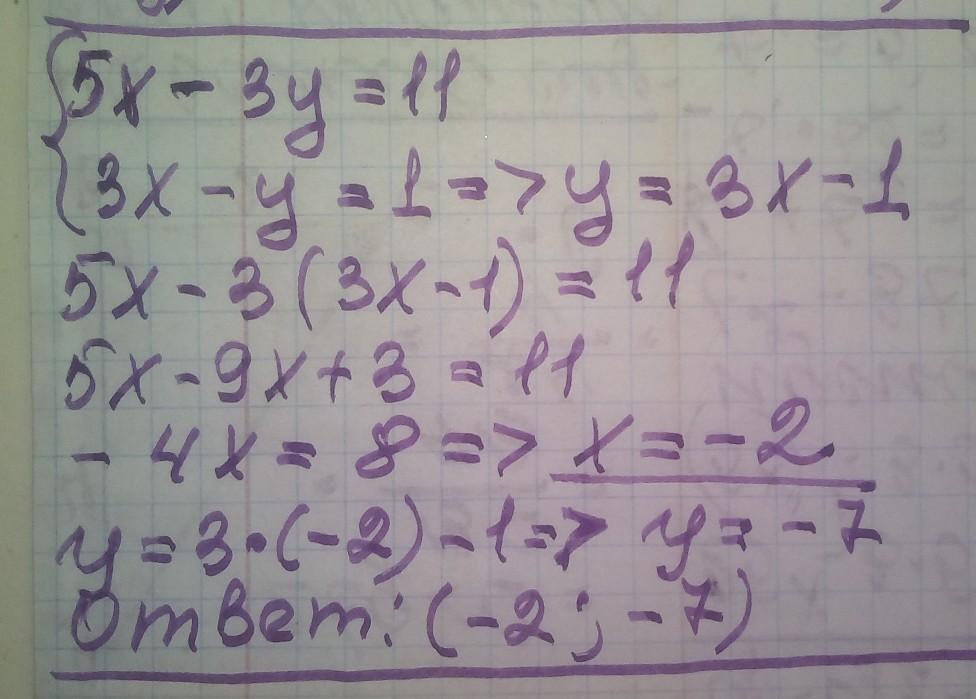 5x - 3y = 11
3x - y = 1 => y = 3x - 1
5x - 3(3x - 1) = 11
5x - 9x + 3 = 11
- 4x = 8 => x = -2
y = 3·(-2) - 1 => y = -7
Ответ: (-2; -7)